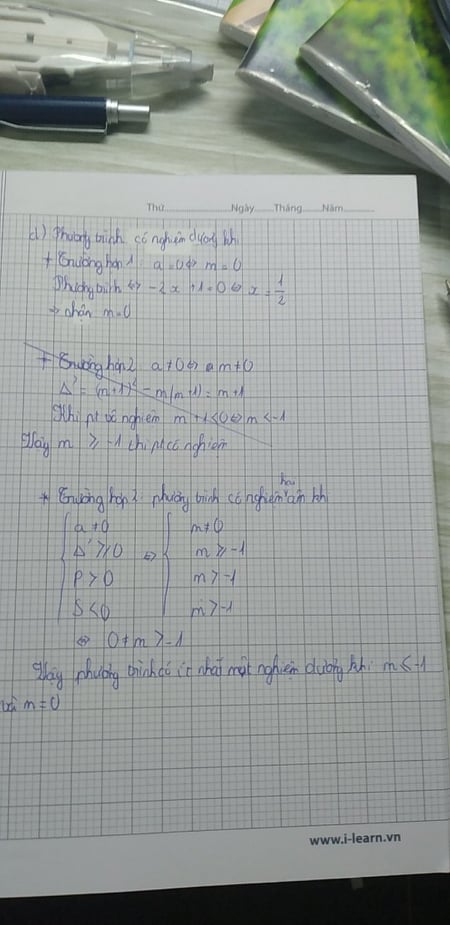 Thứ Ngày Tháng Năm
d) Phương trình có nghiệm dương khi
+ Trường hợp 1: a = 0 ⇔ m = 0
Phương trình ⇔ -2x + 1 = 0 ⇔ x = 1/2
⇒ nhận m = 0
+ Trường hợp 2: a ≠ 0 ⇔ m ≠ 0
Δ' = (m+1)² - m(m+1) = m+1
Khi pt vô nghiệm m+1 < 0 ⇔ m < -1
Vậy m ≥ -1 thì pt có nghiệm
* Trường hợp 2: phương trình có hai nghiệm âm khi
{ a ≠ 0 { m ≠ 0
Δ' ≥ 0 ⇔ m ≥ -1
P > 0 m > -1
S < 0 m > -1
⇔ 0 ≠ m > -1
Vậy phương trình có ít nhất một nghiệm dương khi m ≤ -1
và m = 0
www.i-learn.vn